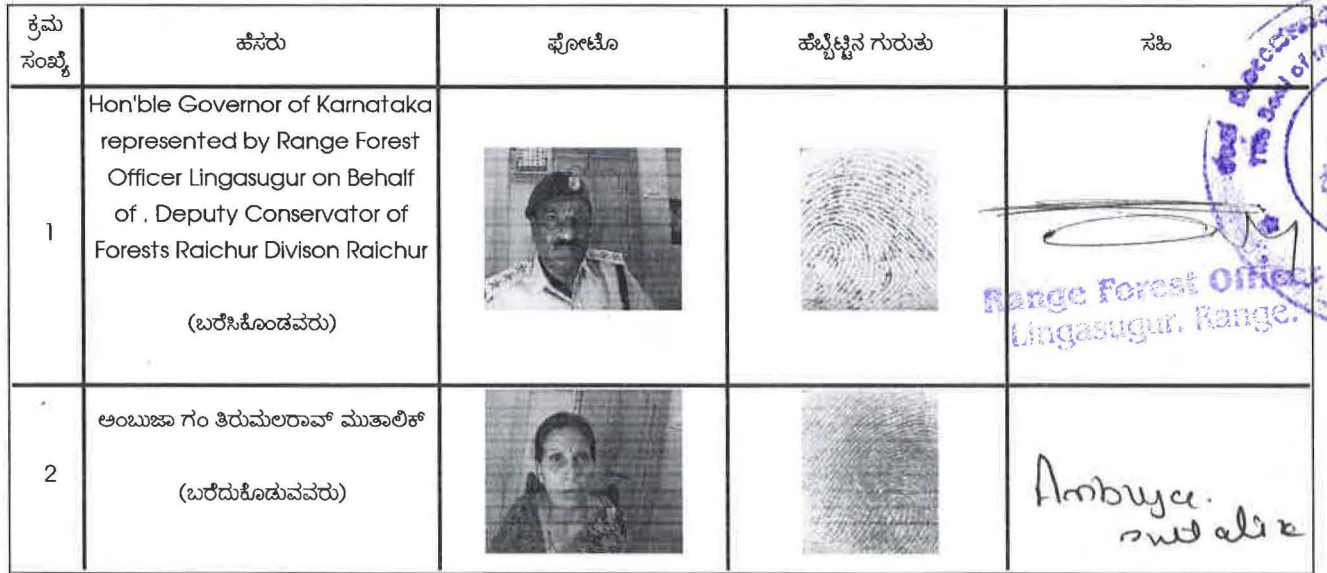 ಕ್ರಮ
ಸಂಖ್ಯೆ
ಹೆಸರು
ಫೋಟೊ
ಹೆಬ್ಬೆಟ್ಟಿನ ಗುರುತು
ಸಹಿ
1
Hon'ble Governor of Karnataka
represented by Range Forest
Officer Lingasugur on Behalf
of . Deputy Conservator of
Forests Raichur Divison Raichur
(ಬರೆಸಿಕೊಂಡವರು)
Range Forest Officer
Lingasugur. Range.
2
ಅಂಬುಜಾ ಗಂ ತಿರುಮಲರಾವ್ ಮುತಾಲಿಕ್
(ಬರೆದುಕೊಡುವವರು)
Ambuja.
mutalik